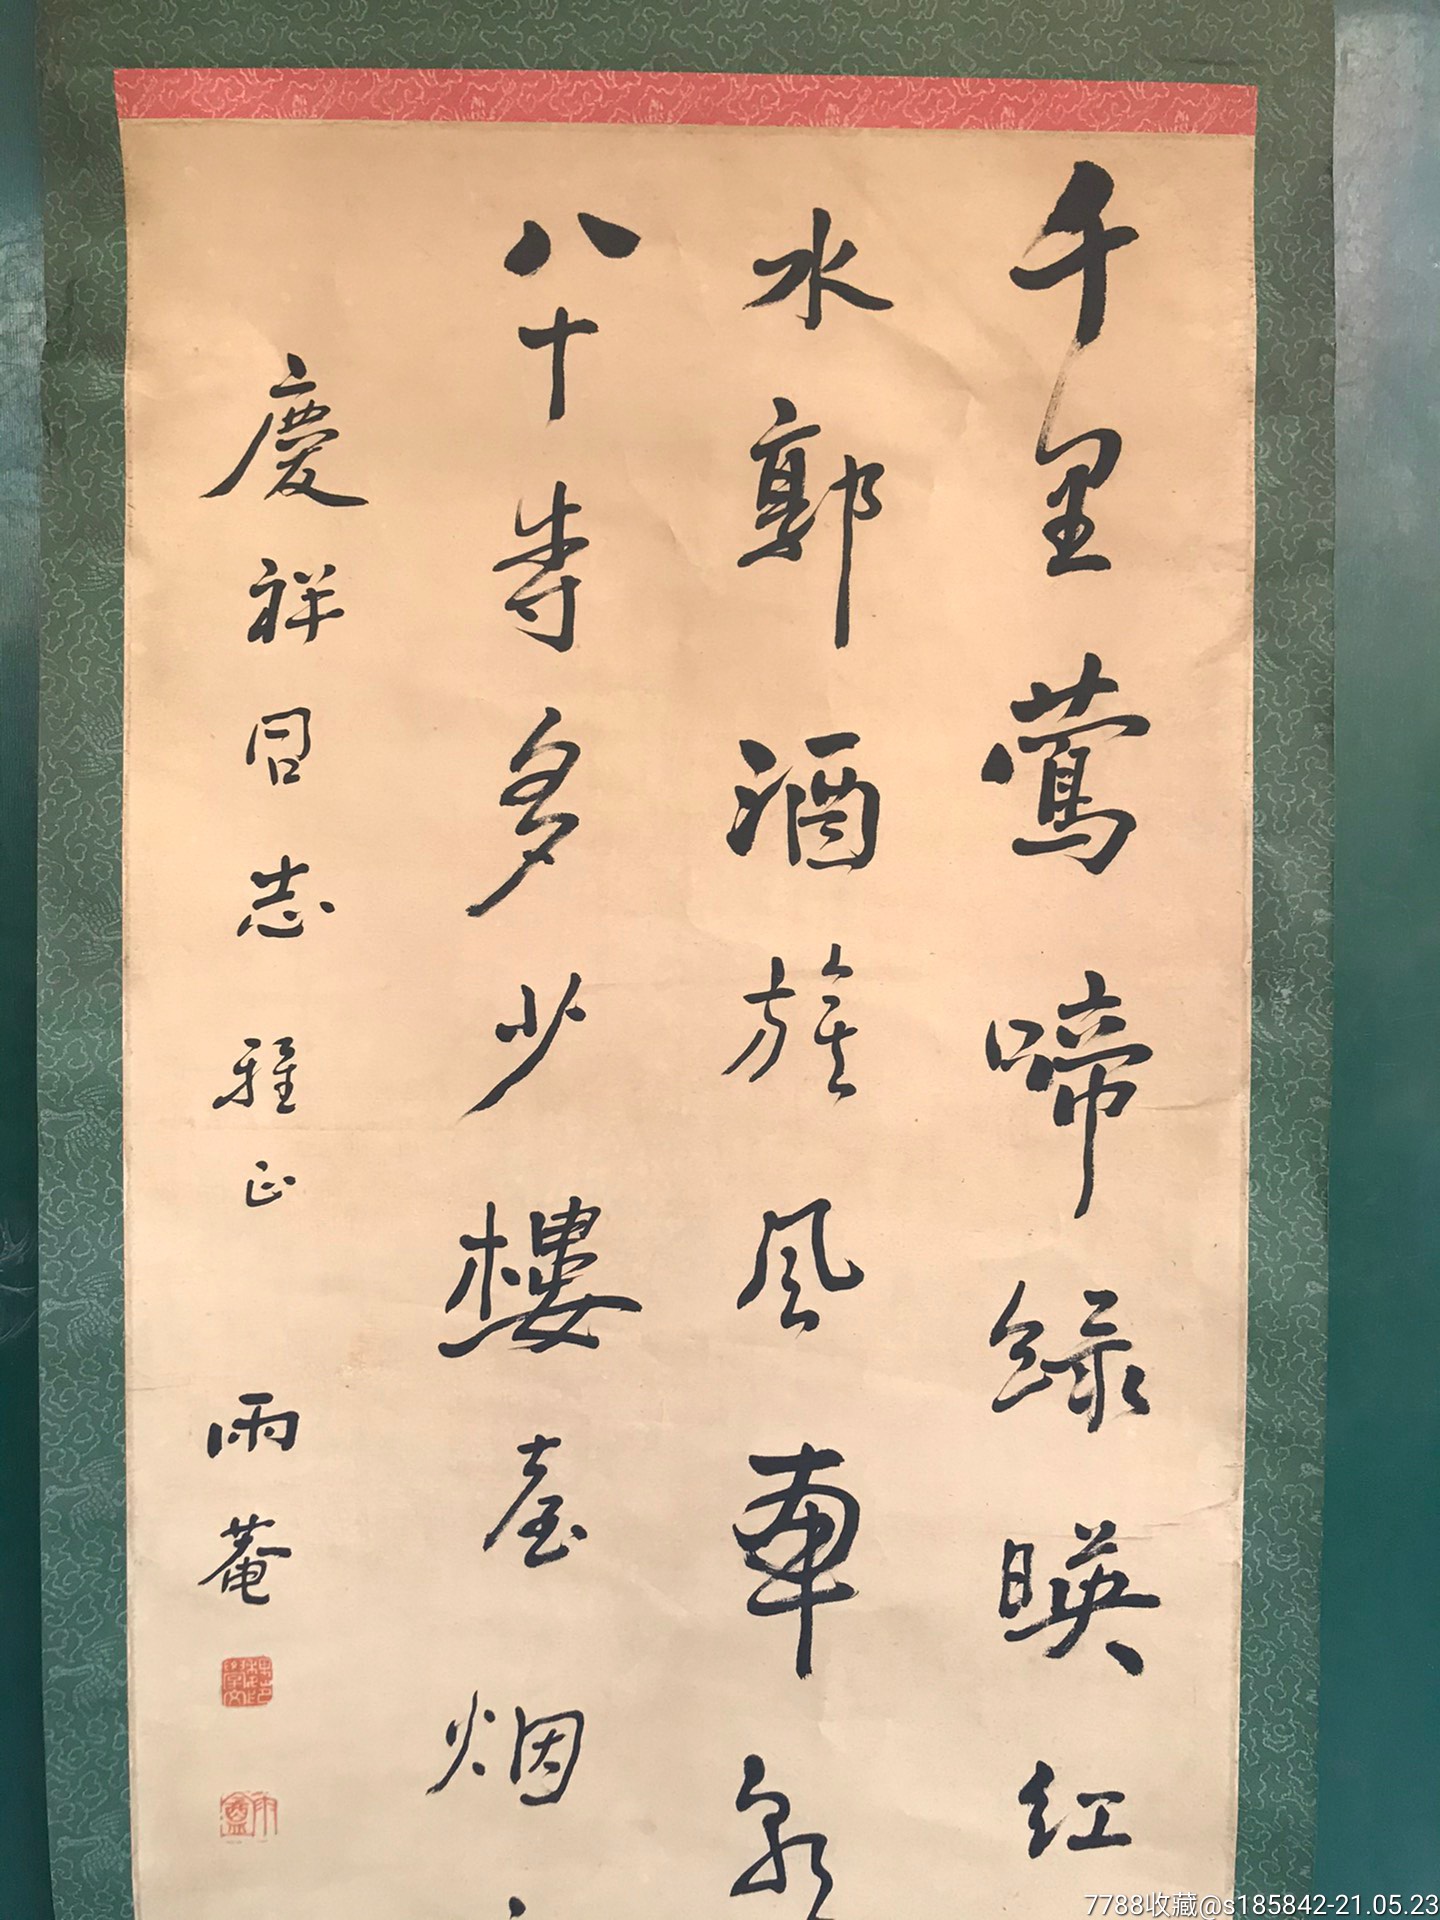 千里鶯啼綠暎紅
水郭酒旗風南
八十寺多少樓臺烟
慶祥同志雅正 雨菴
7788收藏@s185842-21.05.23